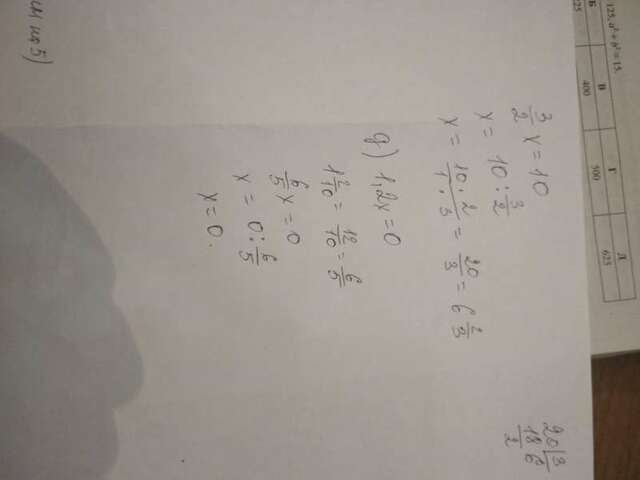 125, a² + b² = 15.
Б В Г Д
225 400 500 625
3/2 x = 10
x = 10 : 3/2
x = 10 · 2 / 1 · 3 = 20/3 = 6 2/3
g) 1,2x = 0
1 2/10 = 12/10 = 6/5
6/5 x = 0
x = 0 : 6/5
x = 0.
из 5)
20 | 3
18 6
2